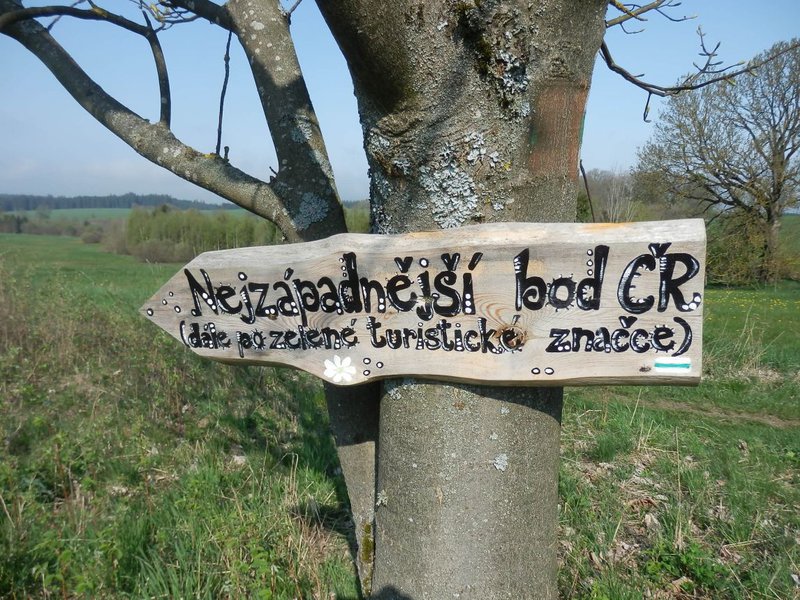 Nejzápadnější bod ČR
(dále po zelené turistické značce)